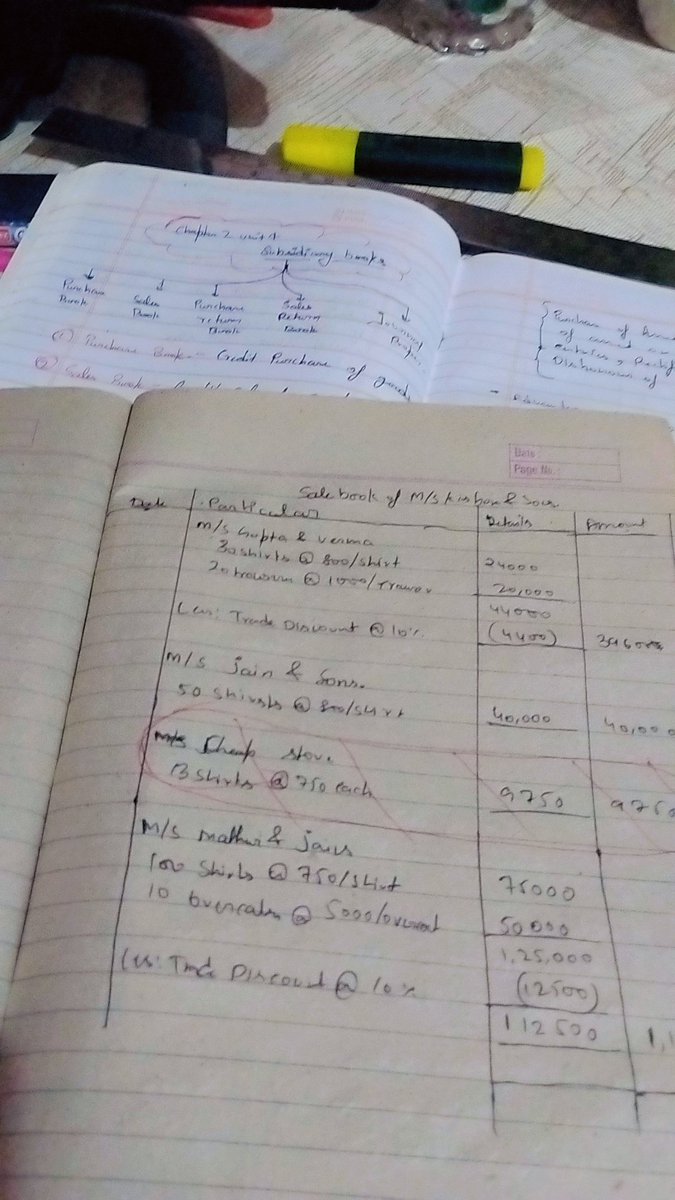 Chapter 2 unit 1
Subsidiary books
Purchase Book
Sales Book
Purchase return Book
Sales Return Book
Journal
(1) Purchase Book - Credit Purchase of goods
(2) Sales Book -
Purchase of
of
Dishonour of
Date:
Page No.
Sale book of M/s & Sons
Date Particular Details Amount
M/s Gupta & verma
30 shirts @ 800/shirt 24000
20 trousers @ 1000/Trouser 20,000
44000
Less: Trade Discount @ 10% (4400) 39600
M/s Jain & Sons.
50 shirts @ 800/shirt 40,000 40,000
M/s Cheap store
13 shirts @ 750 each 9750 9750
M/s Mathur & Jain
100 shirts @ 750/shirt 75000
10 overcoats @ 5000/overcoat 50000
1,25,000
Less: Trade Discount @ 10% (12500)
112500 1,1